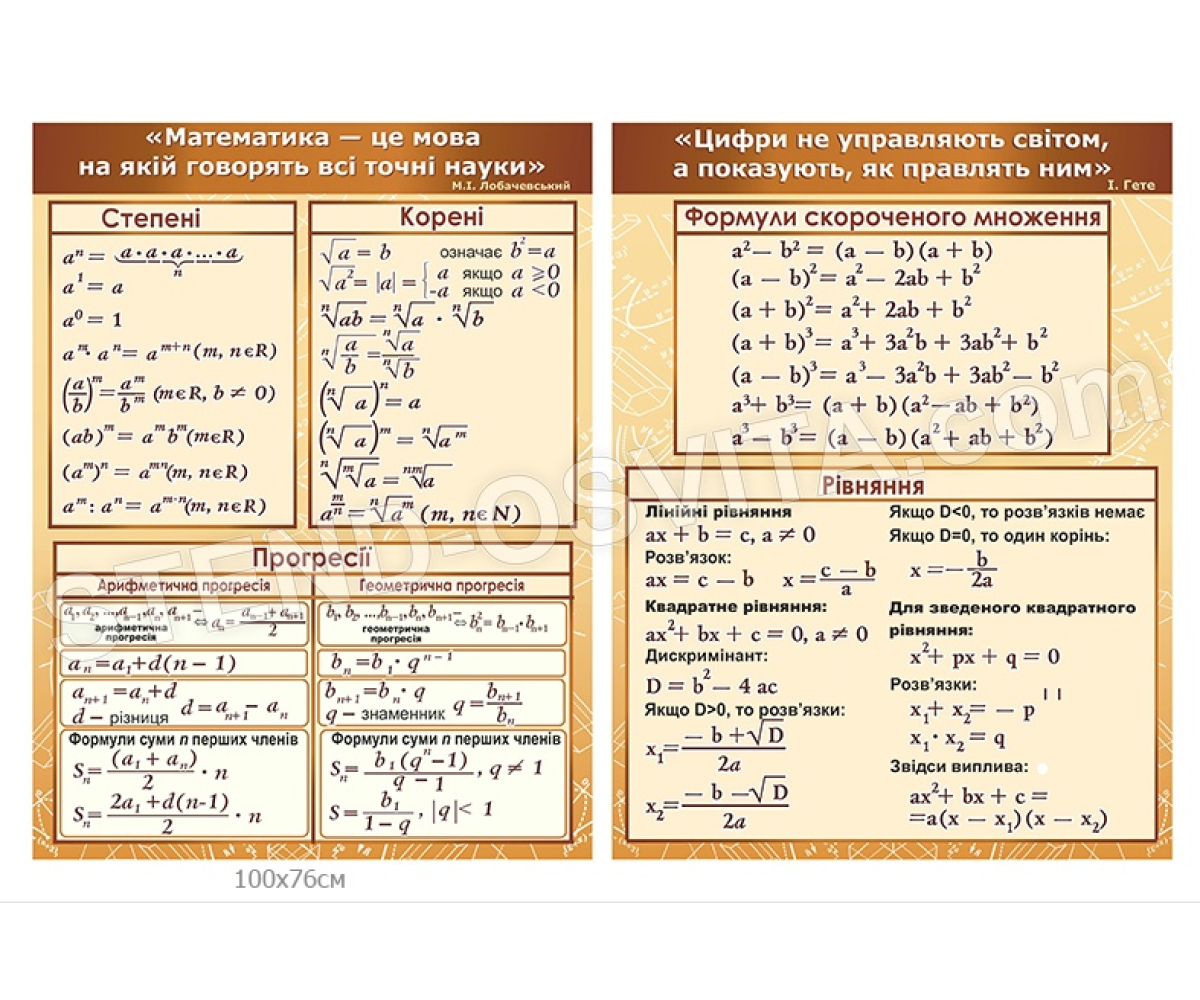 «Математика — це мова
на якій говорять всі точні науки»
М.І. Лобачевський
Степені
aⁿ = a·a·a·...·a
n
a¹ = a
a⁰ = 1
aᵐ· aⁿ= aᵐ⁺ⁿ (m, nєR)
(a/b)ᵐ = aᵐ/bᵐ (mєR, b ≠ 0)
(ab)ᵐ = aᵐbᵐ(mєR)
(aᵐ)ⁿ = aᵐⁿ(m, nєR)
aᵐ: aⁿ = aᵐ⁻ⁿ(m, nєR)
Корені
√a = b означає b²=a
√a² = |a| = { a якщо a ⩾0
-a якщо a <0
ⁿ√ab = ⁿ√a · ⁿ√b
ⁿ√(a/b) = ⁿ√a / ⁿ√b
(ⁿ√a)ⁿ = a
(ⁿ√a)ᵐ = ⁿ√aᵐ
ⁿ√ᵐ√a = ⁿᵐ√a
a^(m/n) = ⁿ√aᵐ (m, nєN)
Прогресії
Арифметична прогресія
a₁, a₂, ...,aₙ₋₁,aₙ, aₙ₊₁ – ⇔ aₙ = (aₙ₋₁ + aₙ₊₁)/2
арифметична
прогресія
aₙ=a₁+d(n – 1)
aₙ₊₁=aₙ+d
d – різниця d=aₙ₊₁– aₙ
Формули суми n перших членів
Sₙ= (a₁ + aₙ)/2 · n
Sₙ= (2a₁+d(n-1))/2 · n
Геометрична прогресія
b₁, b₂, ...,bₙ₋₁,bₙ,bₙ₊₁– ⇔ bₙ²= bₙ₋₁·bₙ₊₁
геометрична
прогресія
bₙ=b₁· qⁿ⁻¹
bₙ₊₁=bₙ· q
q – знаменник q= bₙ₊₁/bₙ
Формули суми n перших членів
Sₙ= b₁(qⁿ–1)/(q – 1), q ≠ 1
S= b₁/(1– q), |q|< 1
«Цифри не управляють світом,
а показують, як правлять ним»
І. Гете
Формули скороченого множення
a²— b² = (a — b)(a + b)
(a — b)²= a²— 2ab + b²
(a + b)²= a²+ 2ab + b²
(a + b)³= a³+ 3a²b + 3ab²+ b²
(a — b)³= a³— 3a²b + 3ab²— b²
a³+ b³= (a + b)(a²— ab + b²)
a³— b³= (a — b)(a²+ ab + b²)
Рівняння
Лінійні рівняння
ax + b = c, a ≠ 0
Розв’язок:
ax = c — b x = (c — b)/a
Квадратне рівняння:
ax²+ bx + c = 0, a ≠ 0
Дискримінант:
D = b²— 4 ac
Якщо D>0, то розв’язки:
x₁= (— b +√D)/2a
x₂= (— b —√D)/2a
Якщо D<0, то розв’язків немає
Якщо D=0, то один корінь:
x =— b/2a
Для зведеного квадратного
рівняння:
x²+ px + q = 0
Розв’язки:
x₁+ x₂= — p
x₁· x₂ = q
Звідси виплива:
ax²+ bx + c =
=a(x — x₁)(x — x₂)
STEND-OSVITA.com
100x76см